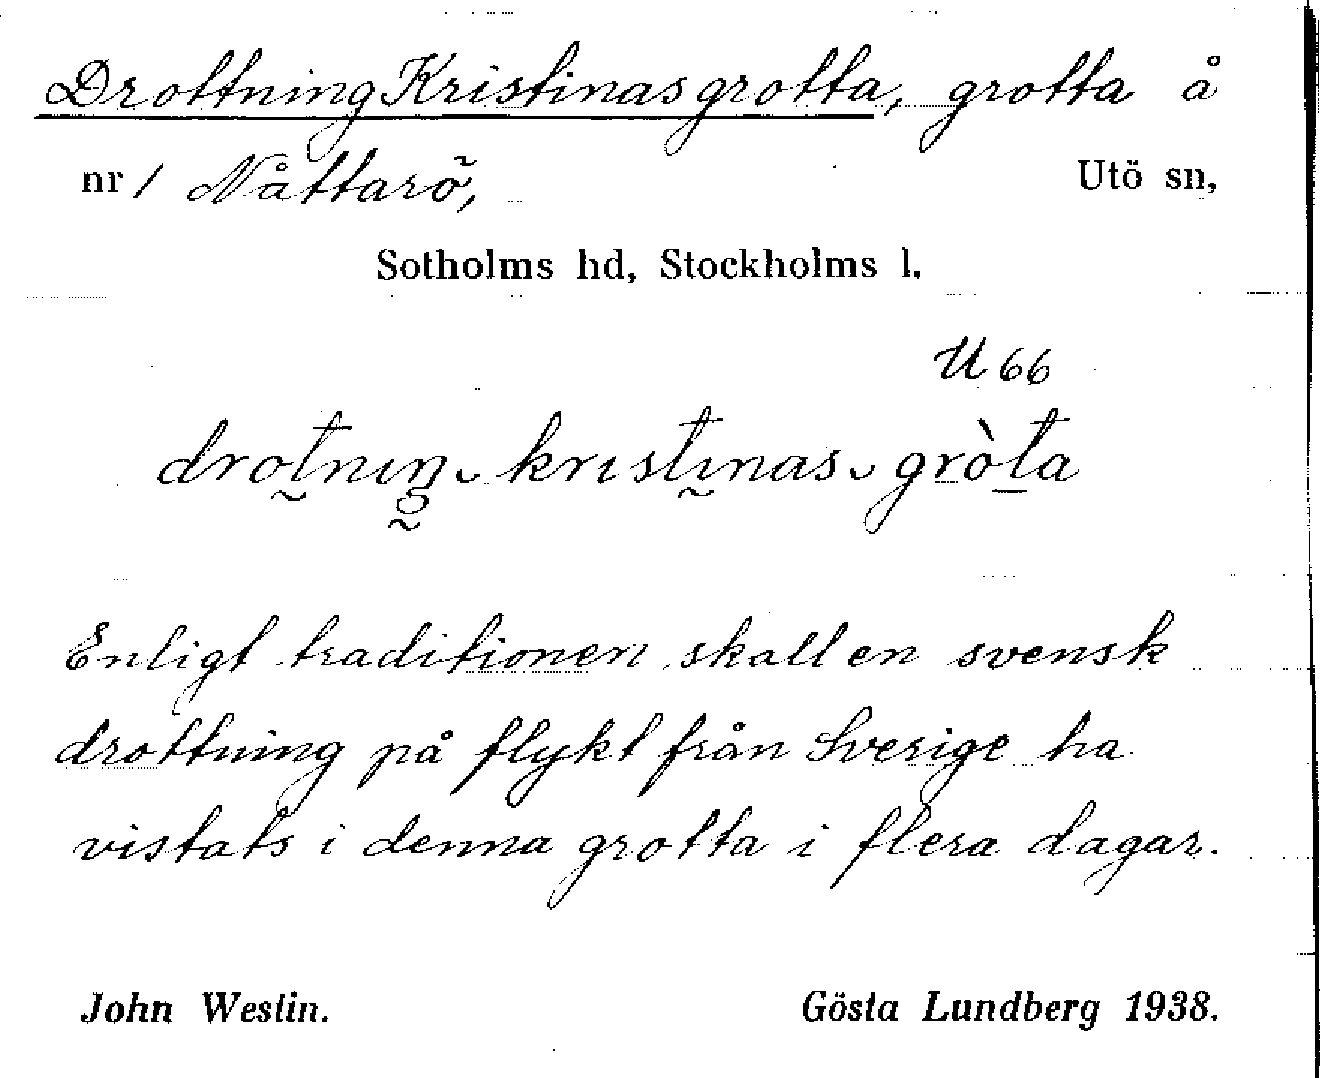 Drottning Kristinas grotta, grotta å
nr 1 Nåttarö, Utö sn,
Sotholms hd, Stockholms l.
U 66
drotnıŋ ᴗ krıstınas ᴗ gròta
Enligt traditionen skall en svensk
drottning på flykt från Sverige ha
vistats i denna grotta i flera dagar.
John Westin. Gösta Lundberg 1938.